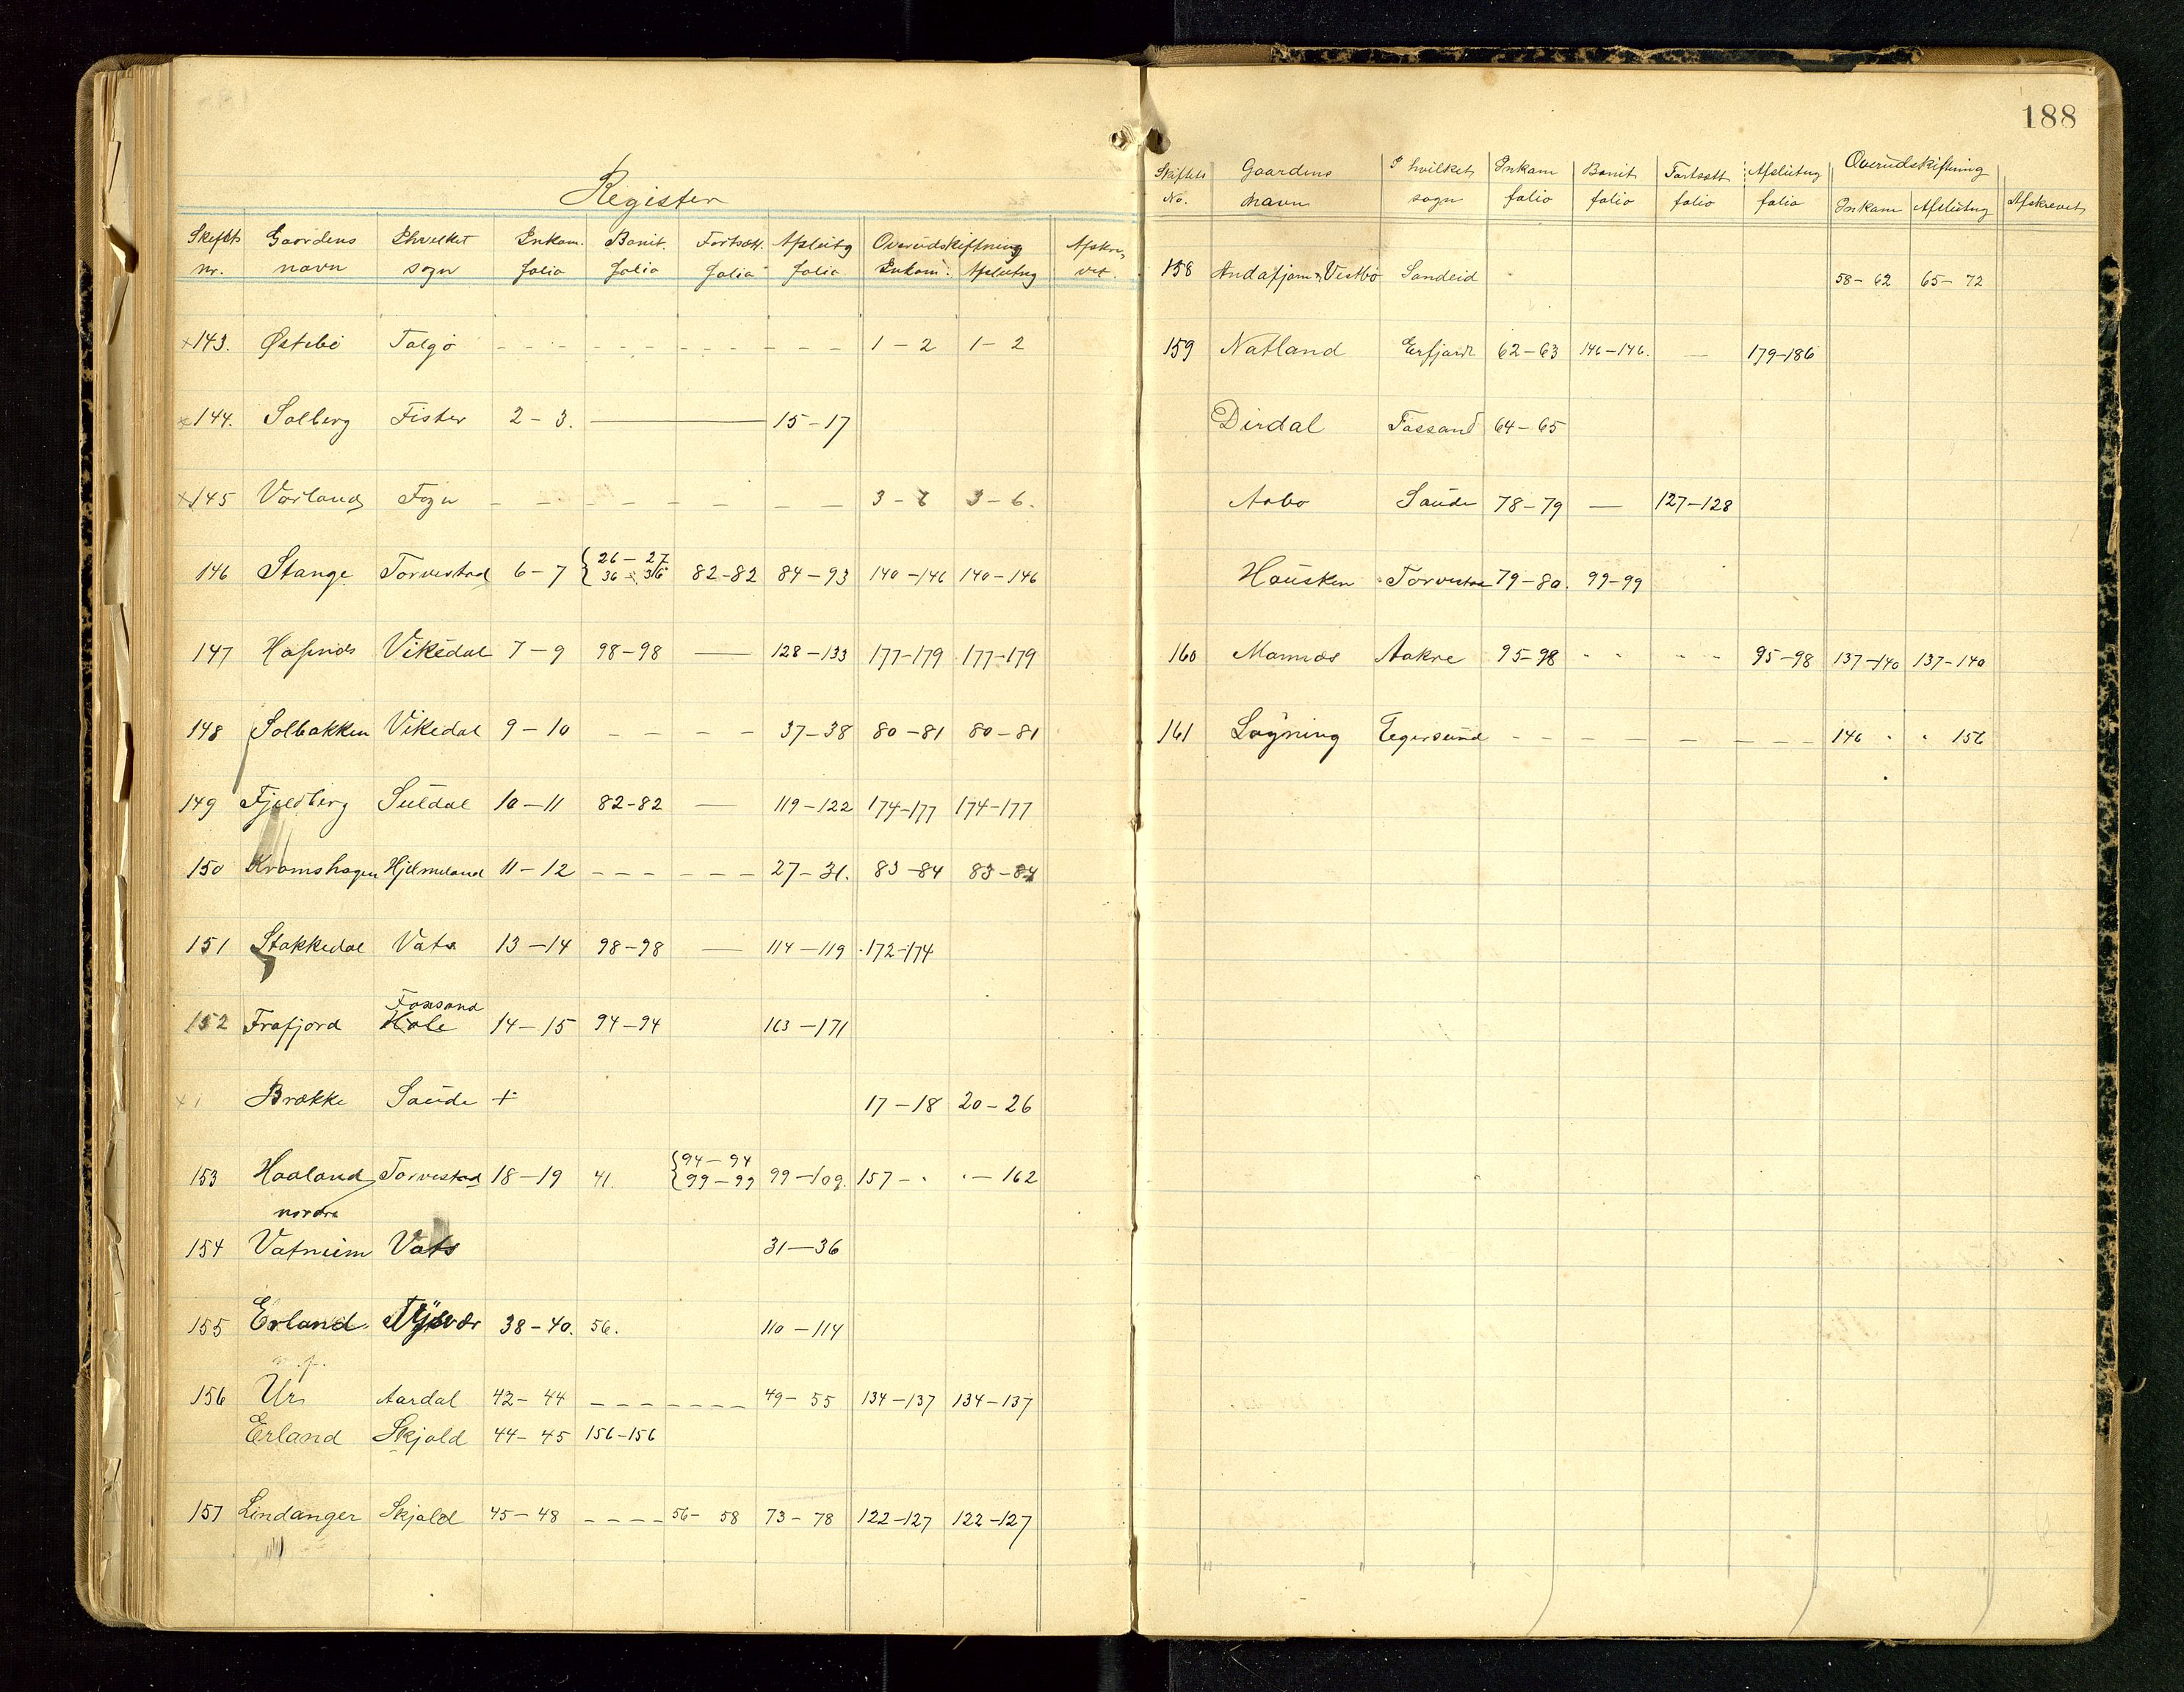 Register
Skifts Gaardens Ihvilket Inkam. Bonit. Fortsætt. Afslutng Overudskiftning Afskre,
nr. navn sogn folio folio folio folio Inkam. Afslutng vet.
×143. Østebø Talgø - - - - - - - - - - 1 - 2 1 - 2
×144. Solberg Fister 2 - 3. — 15 - 17
×145 Vårland Fogn - - - - - - - - 3 - 6 3 - 6.
146 Stange Torvestad 6 - 7 { 26 - 27 36 - 36 82-82 84-93 140-146 140-146
147 Vikedal 7 - 9 98-98 — 128-133 177-179 177-179
148 Solbakken Vikedal 9 - 10 - - - - 37-38 80-81 80-81
149 Fjeldberg Suldal 10-11 82-82 — 119-122 174-177 174-177
150 Kromshagen Hjelmeland 11-12 - - - - - - 27-31. 83-84 83-84
151 Stakkedal Vats 13-14 98-98 — 114-119 172-174
Fossand
152 Frafjord Hole 14-15 94-94 163-171
× Brække Saude + 17-18 20-26
153 Haaland Torvestad 18-19 41. { 94-94 99-99 99-109. 157 - · · - 162
nordre
154 Vatnum Vats 31-36
155 Erland Tysvær 38-40. 56. 110-114
n.f.
156 Ur Aardal 42-44 - - - - - - - 49-55 134-137 134-137
Erland Skjold 44-45 156-156
157 Lindanger Skjold 45-48 - - - - 56-58 73-78 122-127 122-127
188
Skiftets Gaardens I hvilket Inkam Bonit Fortsatt Afslutng Overudskiftning
No. navn sogn folio folio folio folio Inkam Afslutng Afskrevet
158 Vestbø Sandeid 58-62 65-72
159 Natland Erfjord 62-63 146-146. — 179-186
Dirdal Fossand 64-65
Aabø Saude 78-79 — 127-128
Hausken Torvestad 79-80. 99-99
160 Mannes Aakre 95-98 - - - - 95-98 137-140 137-140
161 Løgning Egersund - - - - - - - - - 146 · · 156